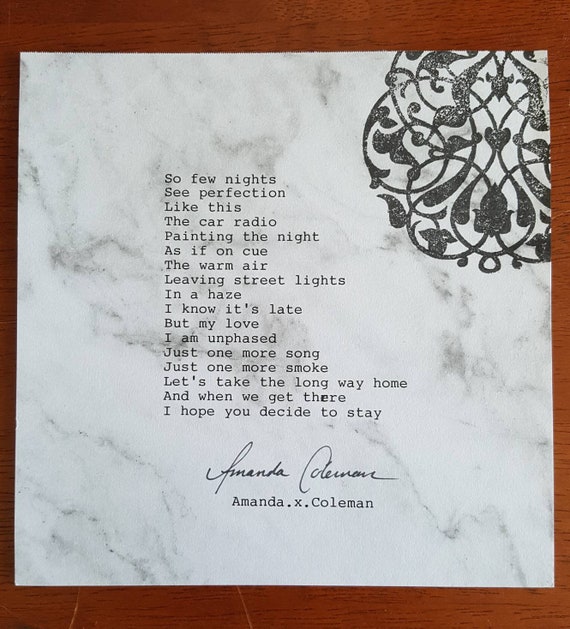 So few nights
See perfection
Like this
The car radio
Painting the night
As if on cue
The warm air
Leaving street lights
In a haze
I know it's late
But my love
I am unphased
Just one more song
Just one more smoke
Let's take the long way home
And when we get there
I hope you decide to stay
Amanda Coleman
Amanda.x.Coleman